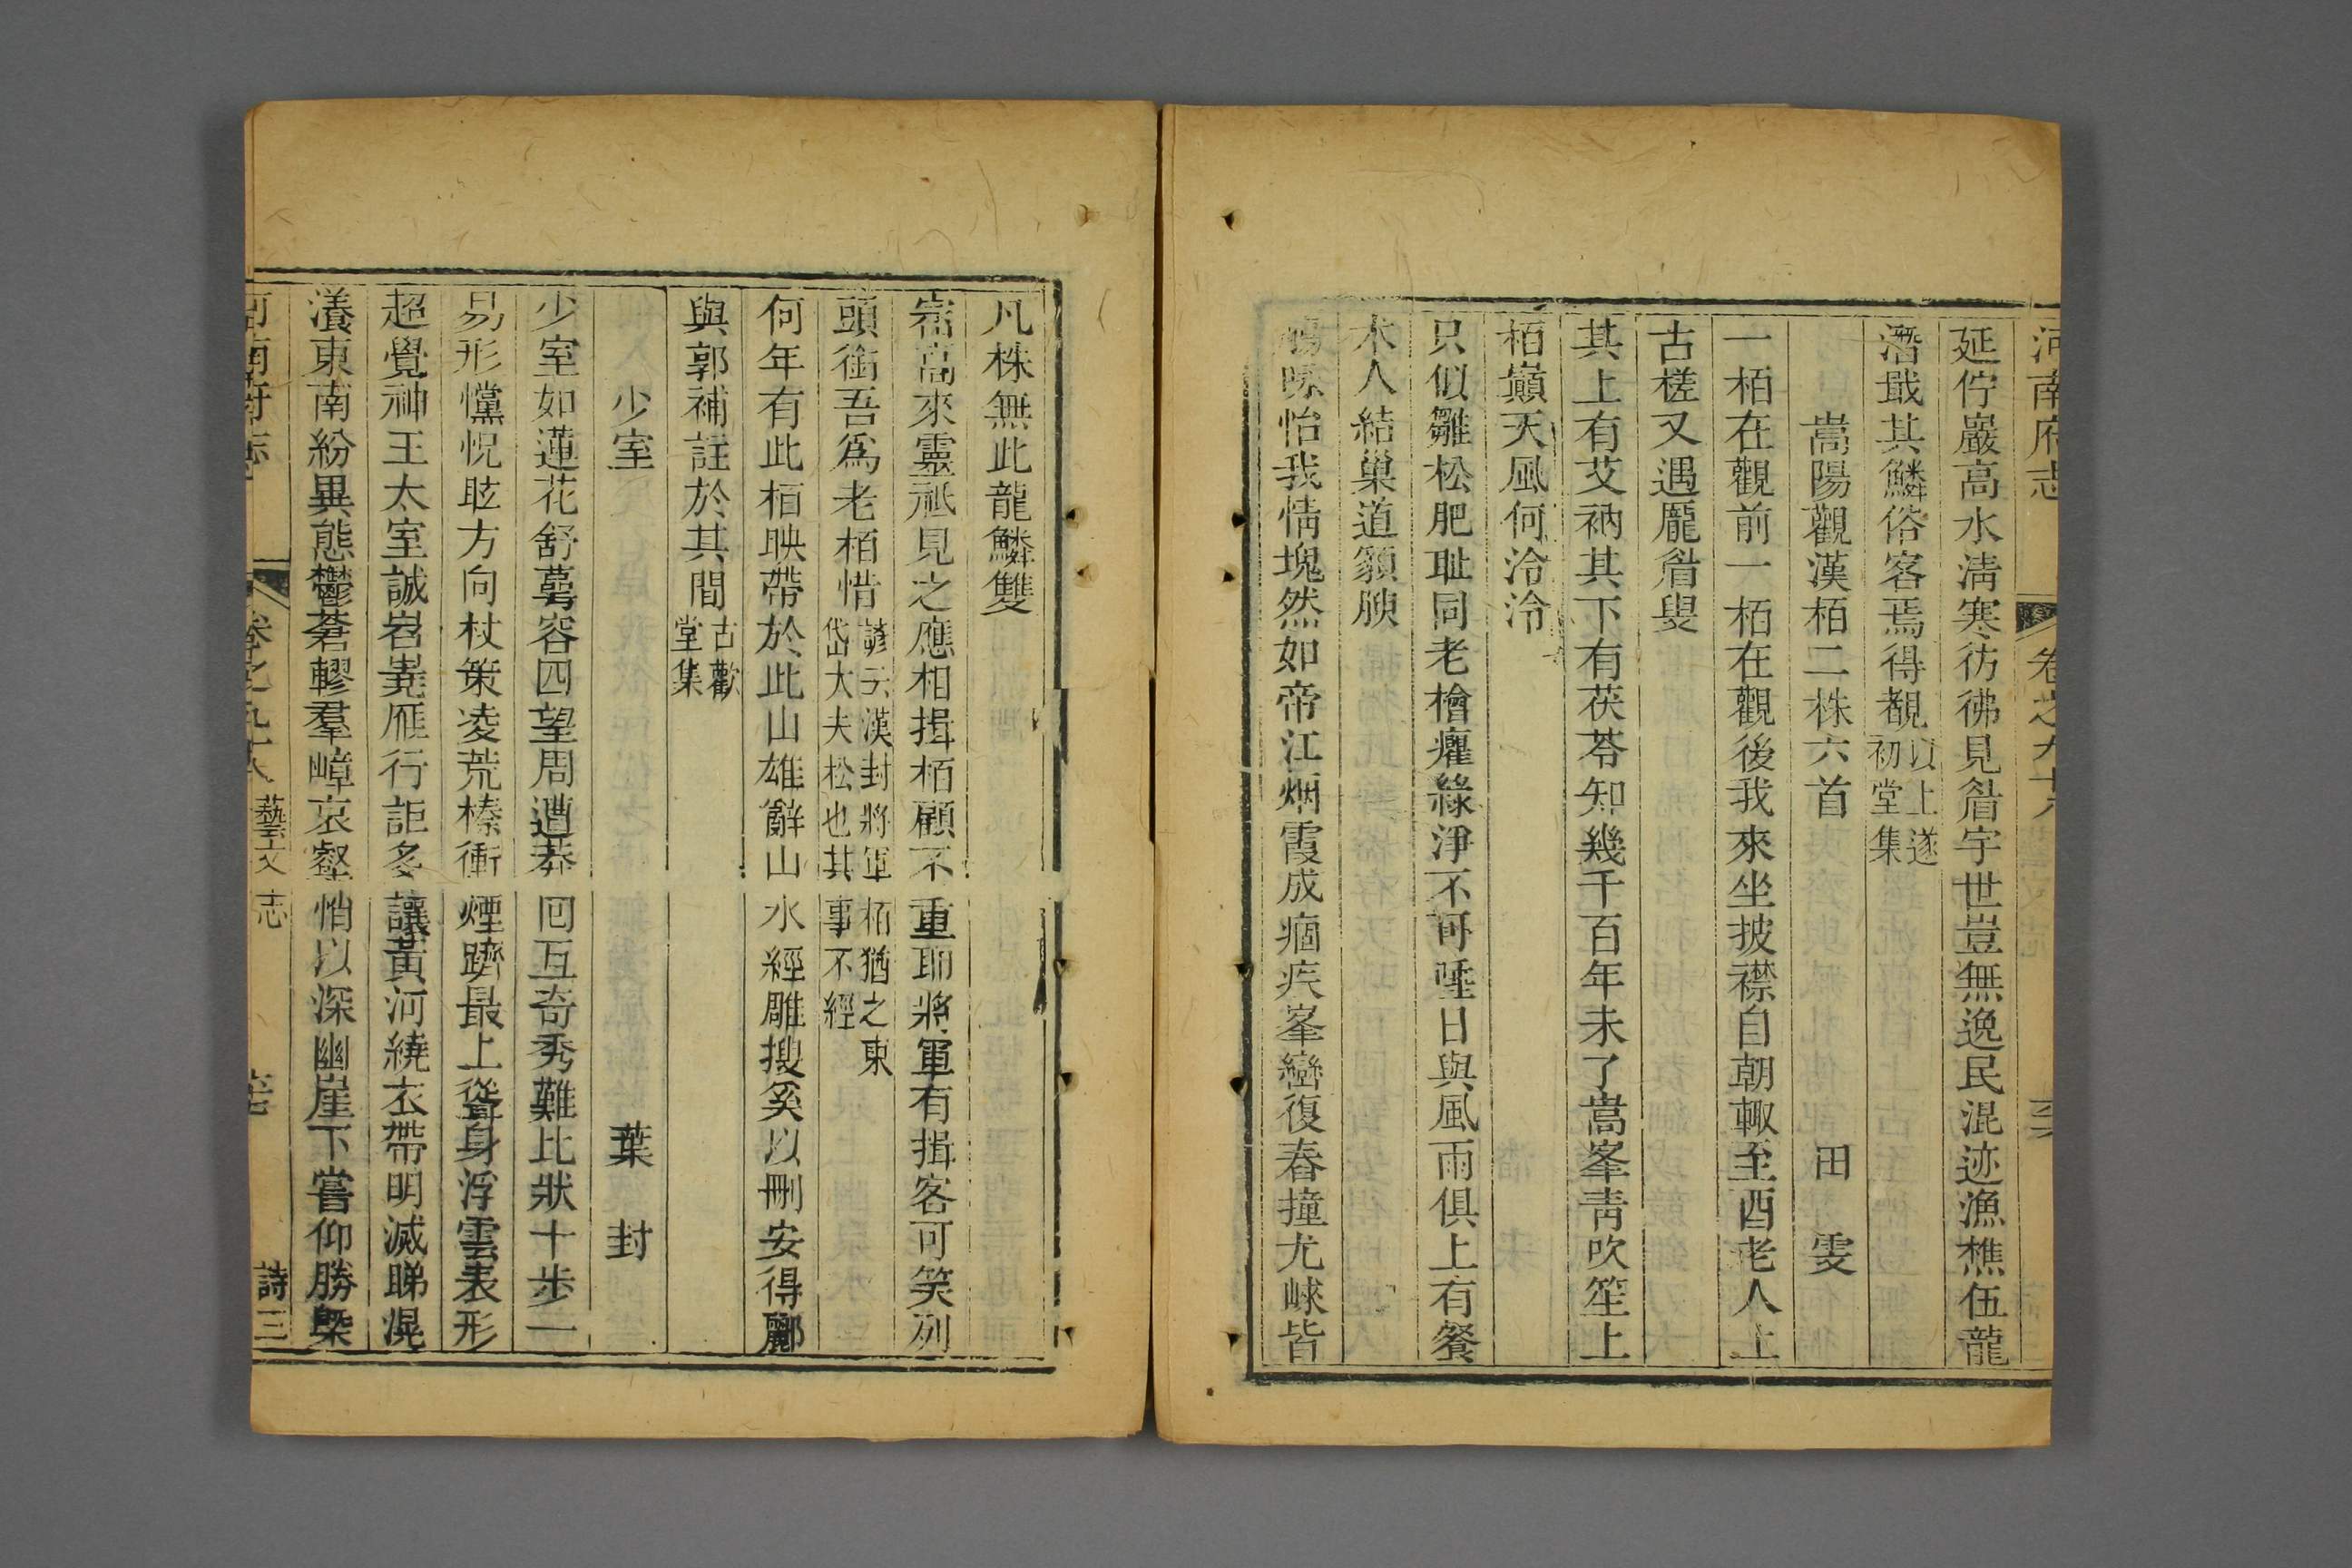 河南府志 卷之九十八
延佇巖高水淸寒彷彿見眉宇世豈無逸民混迹漁樵伍龍
潛戢其鱗俗客焉得覩以上遂初堂集
嵩陽觀漢栢二株六首 田雯
一栢在觀前一栢在觀後我來坐披襟自朝輙至酉老人上
古槎又遇龎眉叟
其上有艾衲其下有茯苓知幾千百年未了嵩峯靑吹笙上
栢巔天風何泠泠
只似雛松肥耻同老檜癯綠淨不可唾日與風雨俱上有餐
木人結巢道貌腴
怡我情塊然如帝江烟霞成痼疾峯巒復舂撞尤崍皆
凡株無此龍鱗雙
嵩高來靈祇見之應相揖栢顧不重耶將軍有揖客可笑列
頭銜吾爲老栢惜諺云漢封將軍栢猶之東岱大夫松也其事不經
何年有此栢映帶於此山雄辭山水經雕搜奚以刪安得酈
與郭補註於其間古歡堂集
少室 葉封
少室如蓮花舒蕚容四望周遭莽囘互奇秀難比狀十步一
易形戃怳眩方向杖策凌荒榛衝煙躋最上聳身浮雲表形
超覺神王太室誠岧嶤雁行詎多讓黃河繞衣帶明滅睇滉
瀁東南紛異態鬱蒼轇羣嶂哀壑悄以深幽崖下嘗仰勝槩
河南府志 卷之九十八 藝文志 詩三